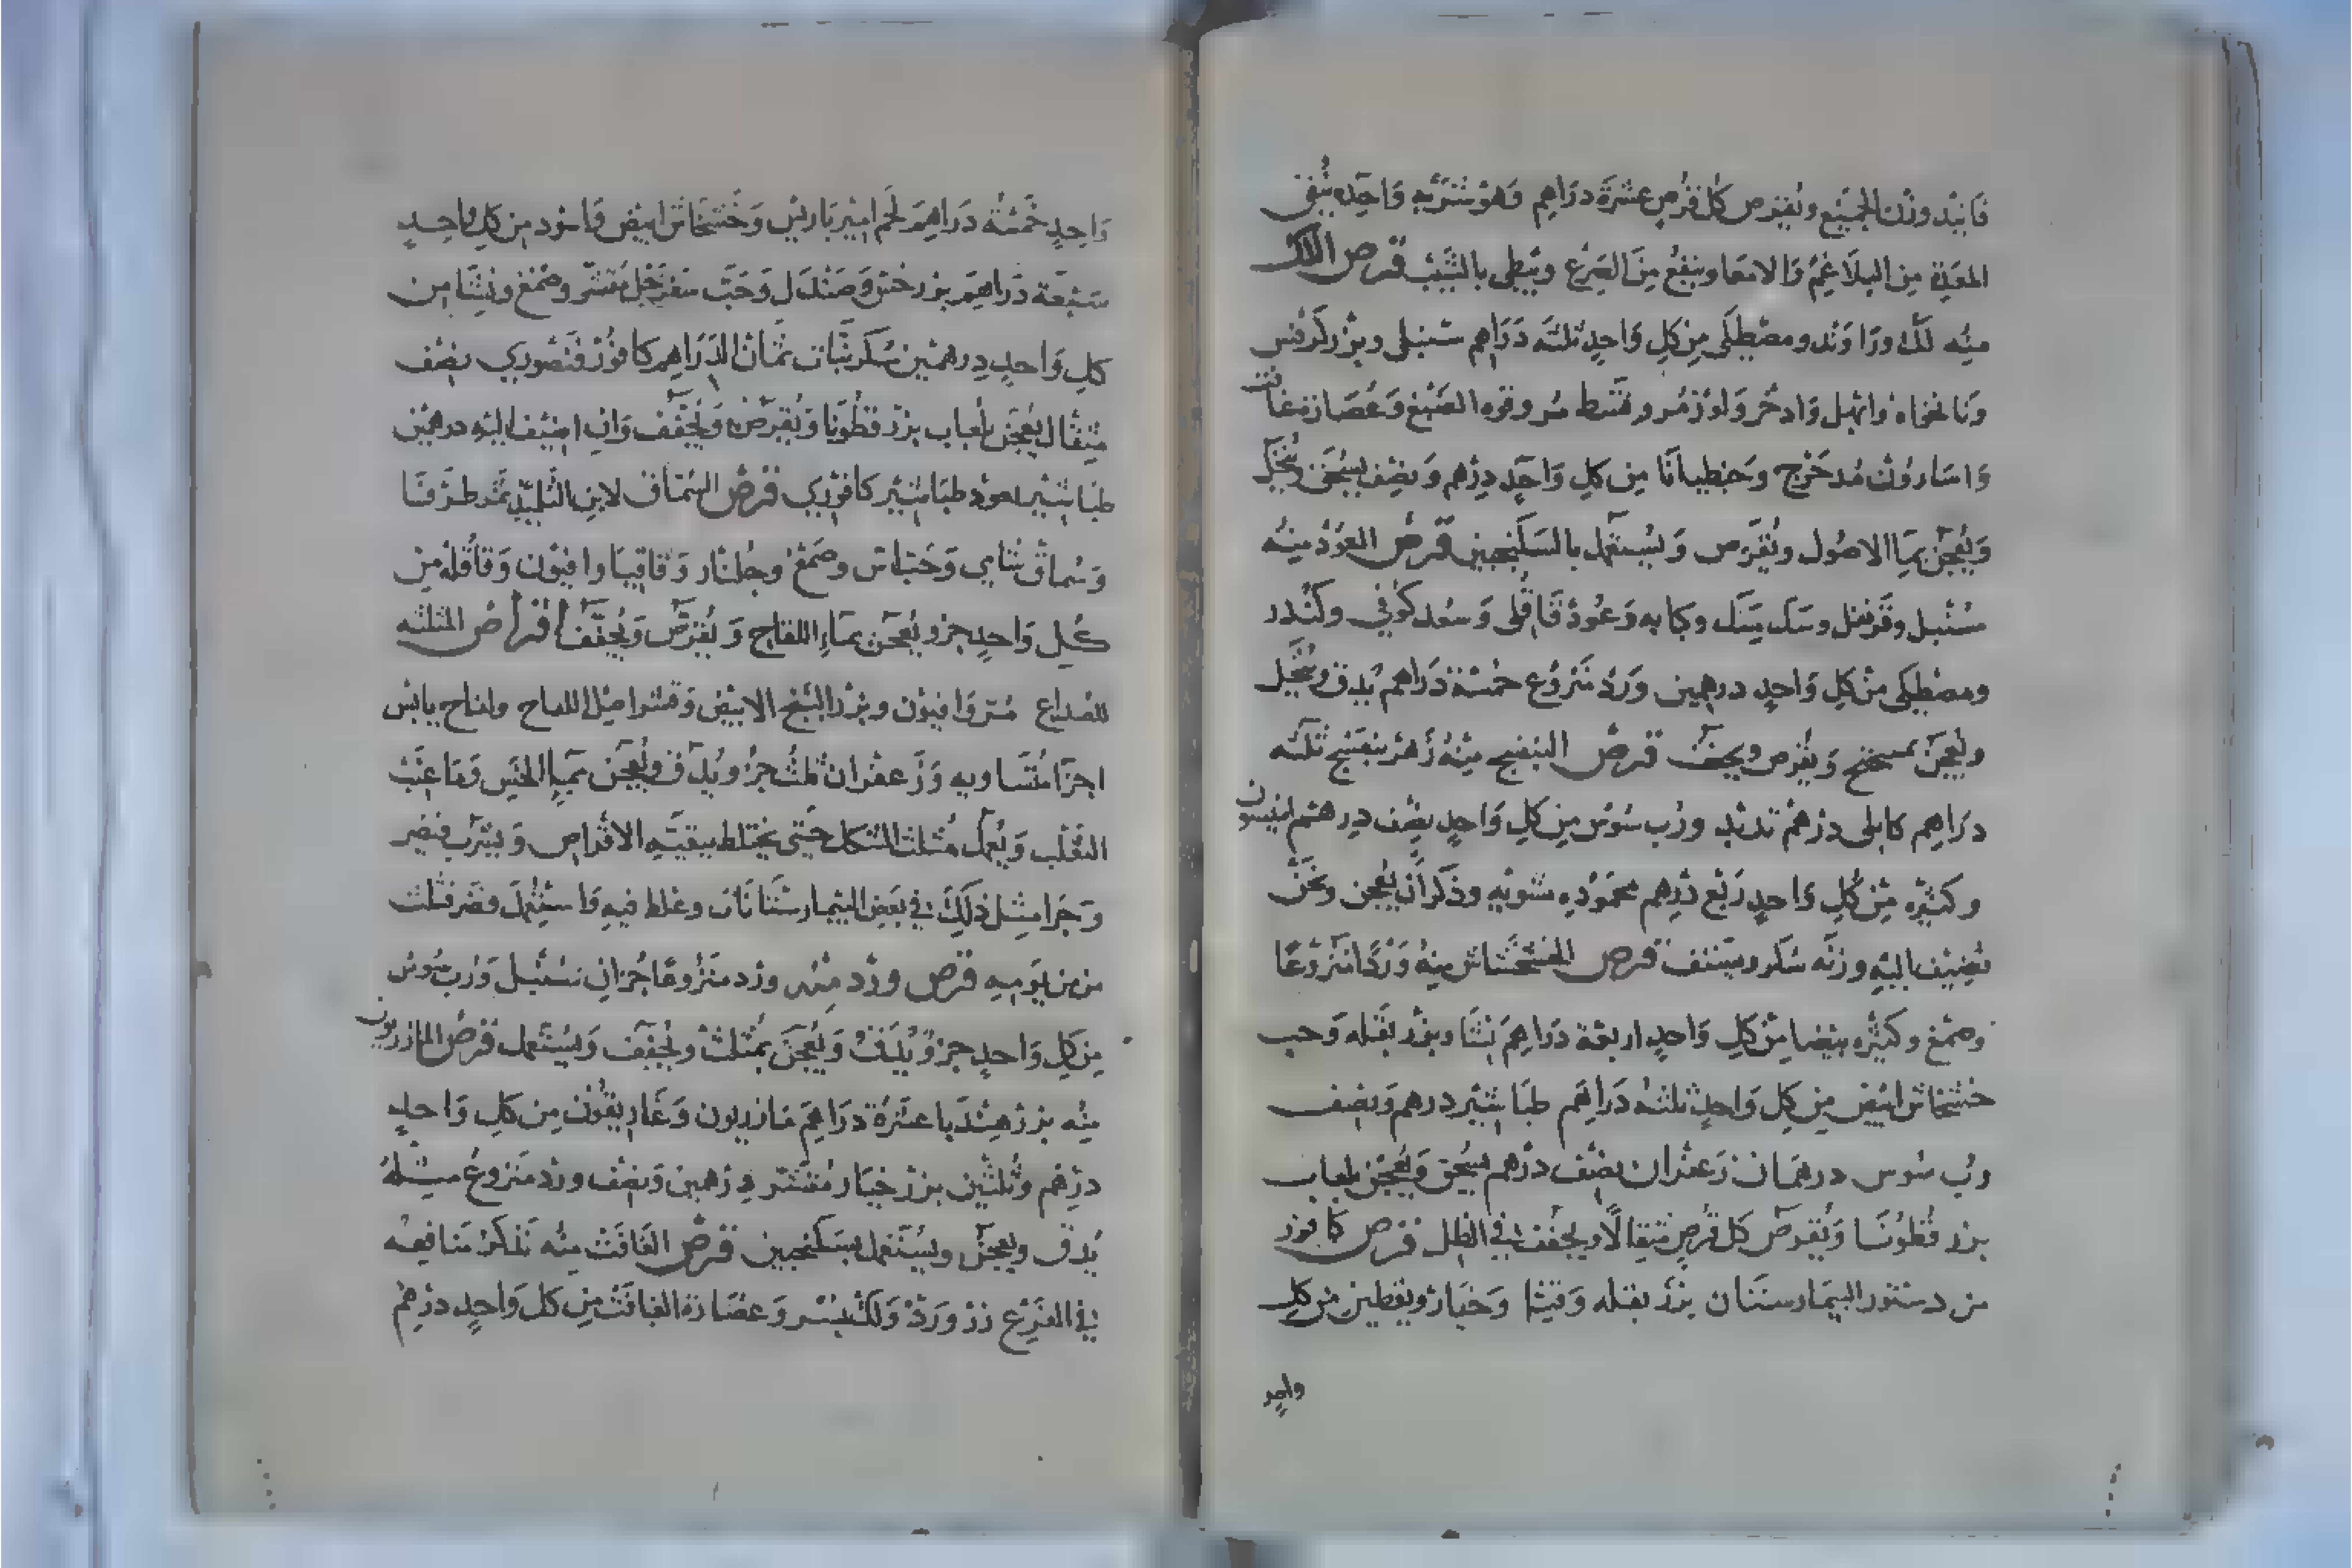 فانيد وزن الجميع ويقرص كل قرص عشرة دراهم وهو شربه واحده ينقى
المعدة من البلاغم والامعا وينفع من الصرع ويبطى بالشيب قرص اللك
منه لك وراوند ومصطكى من كل واحد ثلثه دراهم سنبل وبزر كرفس
ونانخواه وابهل وادخر ولوز مر وقسط مر وفوه الصبغ وعصارة غافث
واسارون مدحرج وجنطيانا من كل واحد درهم ونصف يسحق وينخل
ويعجن بما الاصول ويقرص ويستعمل بالسكنجبين قرص العود منه
سنبل وقرنفل وسك مسك وكبابه وعود قاقلى وسعد كوفي وكندر
ومصطكى من كل واحد درهمين ورد منزوع خمسة دراهم يدق وينخل
ويعجن بميبختج ويقرص ويجفف قرص البنفسج منه زهر بنفسج ثلثه
دراهم كابلى درهم تربد ورب سوس من كل واحد نصف درهم انيسون
وكثيره من كل واحد ربع درهم محموده مشويه وذكر أن يعجن ونحن
نضيف اليه وزنه سكر ويستف قرص الخشخاش منه وردا منزوعا
وصمغ وكثيره بيضا من كل واحد اربعة دراهم نشا وبزر بقله وحب
خشخاش ابيض من كل واحد ثلثه دراهم طباشير درهم ونصف
ورب سوس درهمان زعفران نصف درهم يسحق ويعجن بلعاب
بزر قطونا ويقرص كل قرص مثقالا ويجفف في الظل قرص كافور
من دستور البيمارستان بزر بقله وقثا وخيار ويقطين من كل
واحد
واحد خمسه دراهم لحم امير باريس وخشخاش ابيض واسود من كل واحد
سبعة دراهم بزر خس وصندل وحب سفرجل مقشر وصمغ ونشا من
كل واحد درهمين سكر نبات ثمان الدراهم كافور فنصوري نصف
مثقال يعجن بلعاب بزر قطونا ويقرص ويجفف وان اضيف اليه درهمين
طباشير عود طباشير كافوري قرص السماق لابن التلميذ ثمر طرفا
وسماق شامي وحب اس وصمغ وجلنار وقاقيا وافيون وقاقله من
كل واحد جزو يعجن بماء اللفاح ويقرص ويجفف اقراص المثلثه
للصداع مر وافيون وبزر البنج الابيض وقشر اصل اللفاح ولفاح يابس
اجزا متساويه وزعفران ثلث جزو يدق ويعجن بميا الخس وما عنب
الثعلب ويعمل مثلث الشكل حتى يختلط ببقية الاقراص ويشرب فيضر
وجرا مثل ذلك في بعض البيمارستانات وغلط فيه واستعمل فضر فثلث
من من يوميه قرص ورد منه ورد منزوعا جزان سنبل ورب سوس
من كل واحد جزو يدق ويعجن بمثلث ويجفف ويستعمل قرص المازريون
منه بزر هندبا عشرة دراهم مازريون وغاريقون من كل واحد
درهم وثلثين بزر خيار مقشر درهمين ونصف ورد منزوع مثله
يدق ويعجن ويستعمل بسكنجبين قرص الغافث منه نذكر منافعه
في الفرع زر ورد ولك بسر وعصارة الغافث من كل واحد درهم